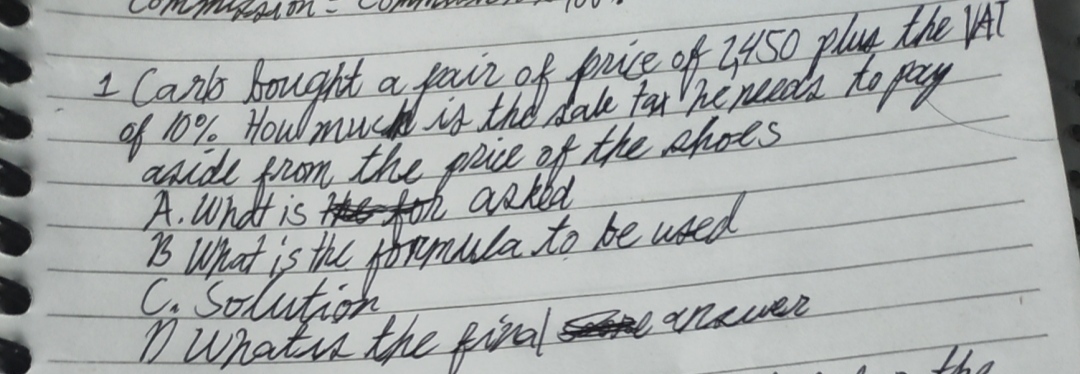 Commission =
1 Carlo bought a pair of price of 2,450 plus the VAT
of 10% How much is the sale tax he needs to pay
aside from the price of the shoes
A. What is asked
B What is the formula to be used
C. Solution
D What is the final answer
the